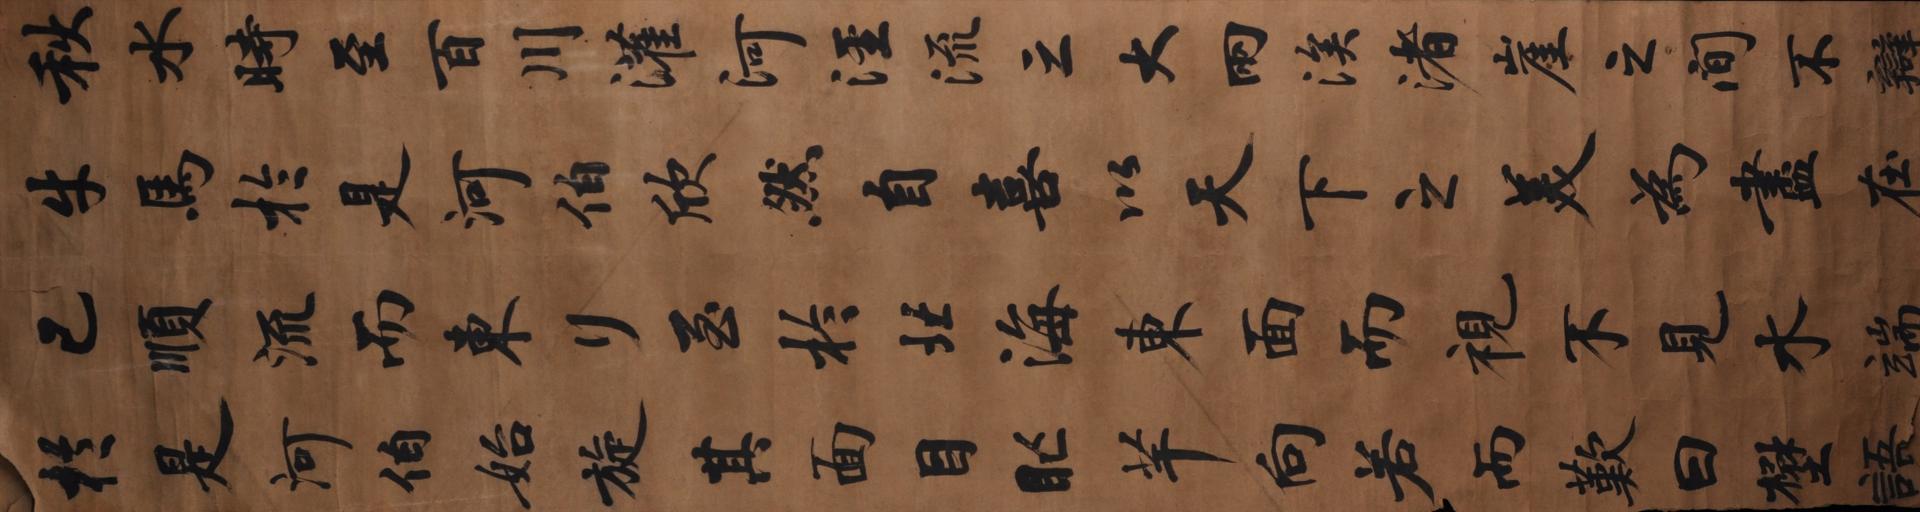 秋水時至百川灌河涇流之大兩涘渚崖之間不辯
牛馬於是河伯欣然自喜以天下之美為盡在
己順流而東行至於北海東面而視不見水端
於是河伯始旋其面目盳羊向若而歎曰壄語